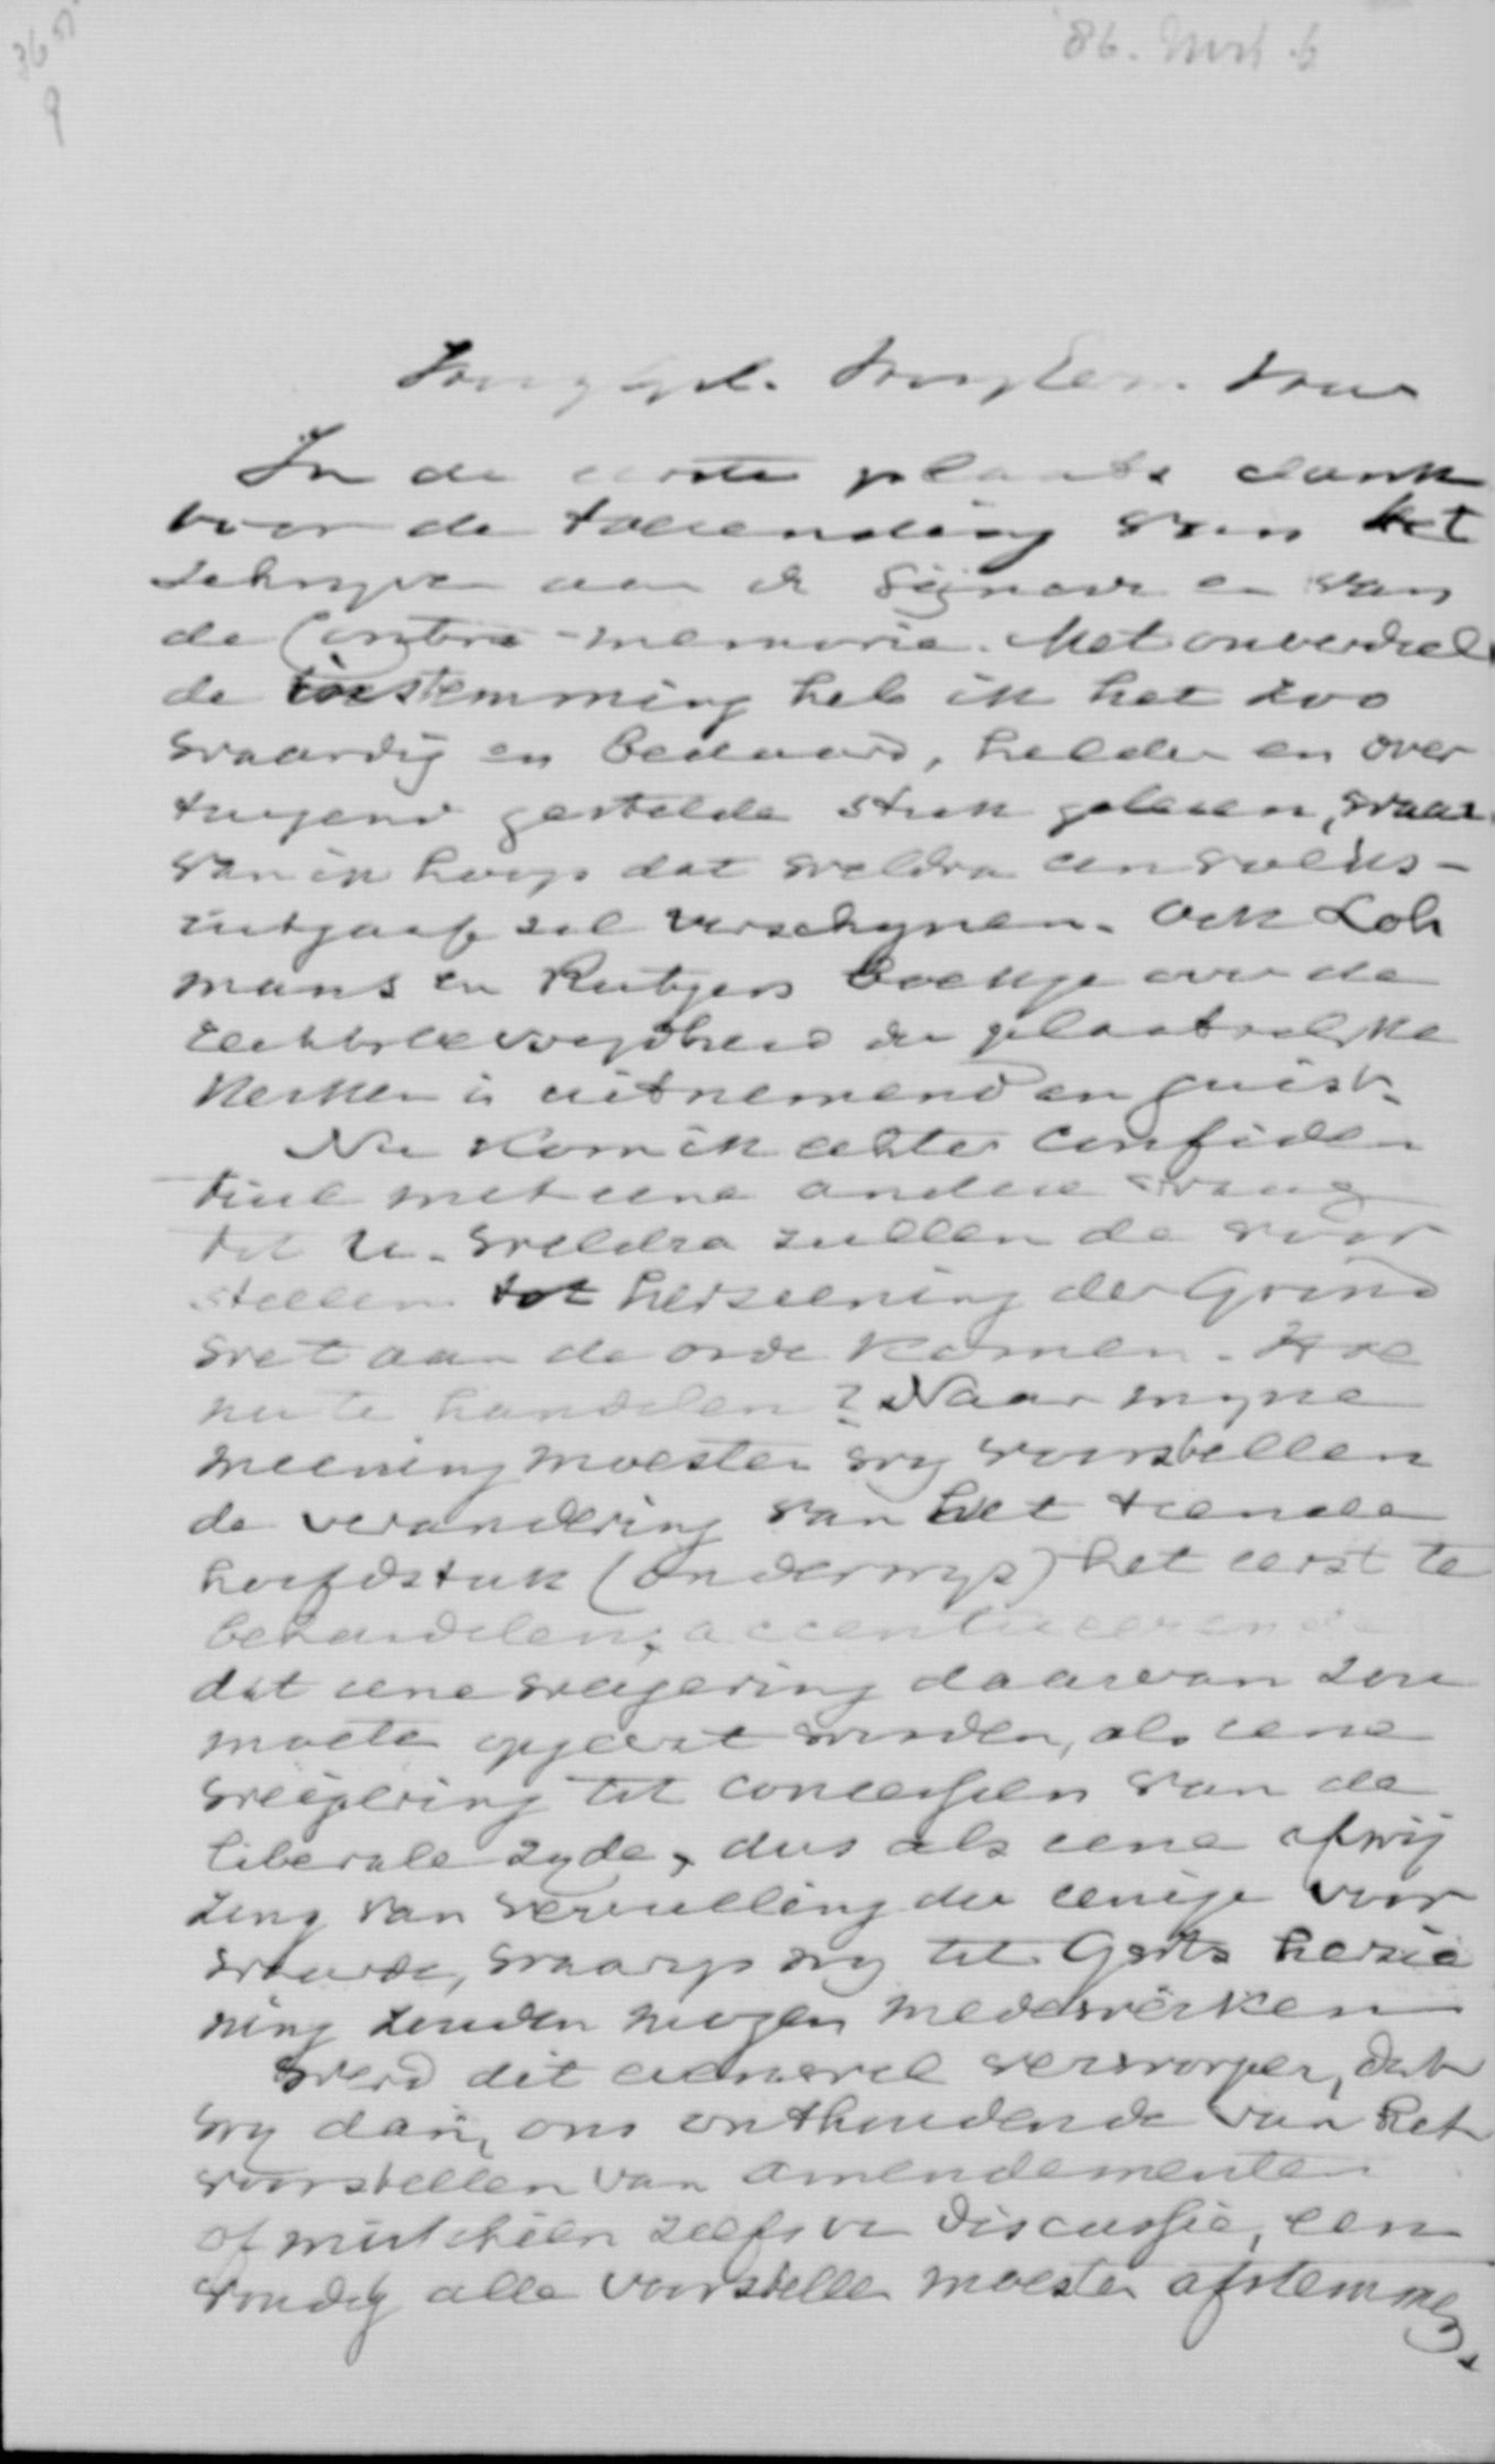 86. Mrt 6
9
Hooggel. Hooggeleerde Heer
In de eerste plaats dank
voor de toezending van het
schryven aan de Synode en van
de Contra-memorie. Met onverdeel
de toestemming heb ik het zoo
waardig en bedaard, helder en over
tuigend gestelde stuk gelezen, waar
van ik hoop dat weldra een volks-
uitgaaf zal verschynen. Ook Loh
mans en Rutgers boekje over de
rechtsbevoegdheid der plaatselyke
kerken is uitnemend en juist.
Nu kom ik echter confiden
tieel met eene andere vraag
tot U. Weldra zullen de voor
stellen tot herziening der Grond
wet aan de orde komen. Hoe
nu te handelen? Naar myne
meening moesten wy voorstellen
de verandering van het tiende
hoofdstuk (onderwys) het eerst te
behandelen, accentueerende
dat eene weigering daarvan zou
moeten opgevat worden, als eene
weigering tot concessien van de
liberale zyde, dus als eene afwij
zing van vervulling der eenige voor
waarde, waarop wy tot Gwts herzie
ning zouden mogen medewerken
Werd dit evenwel verworpen, dat
wy dan, ons onthoudende van het
voorstellen van amendementen
of misschien zelfs van discussie, een
voudig alle voorstellen moesten afstemmen.